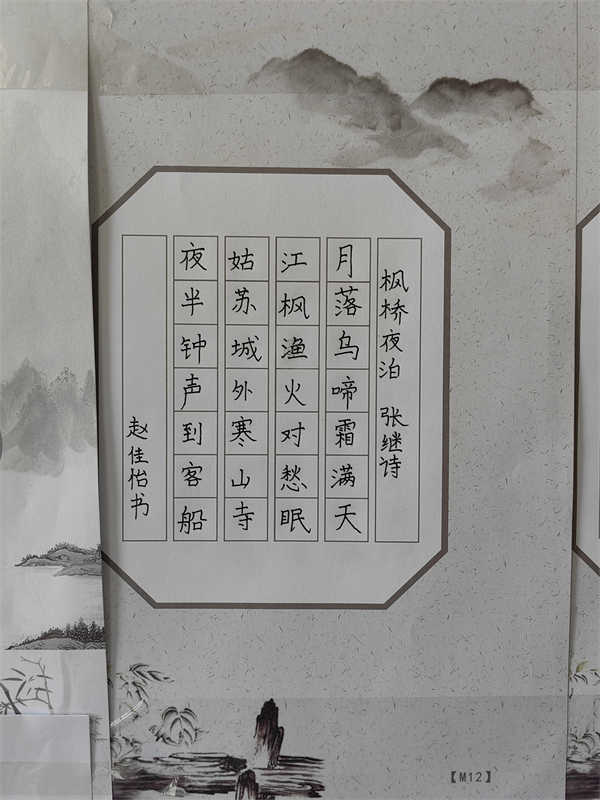 枫桥夜泊 张继诗
月落乌啼霜满天
江枫渔火对愁眠
姑苏城外寒山寺
夜半钟声到客船
赵佳怡书
【M12】